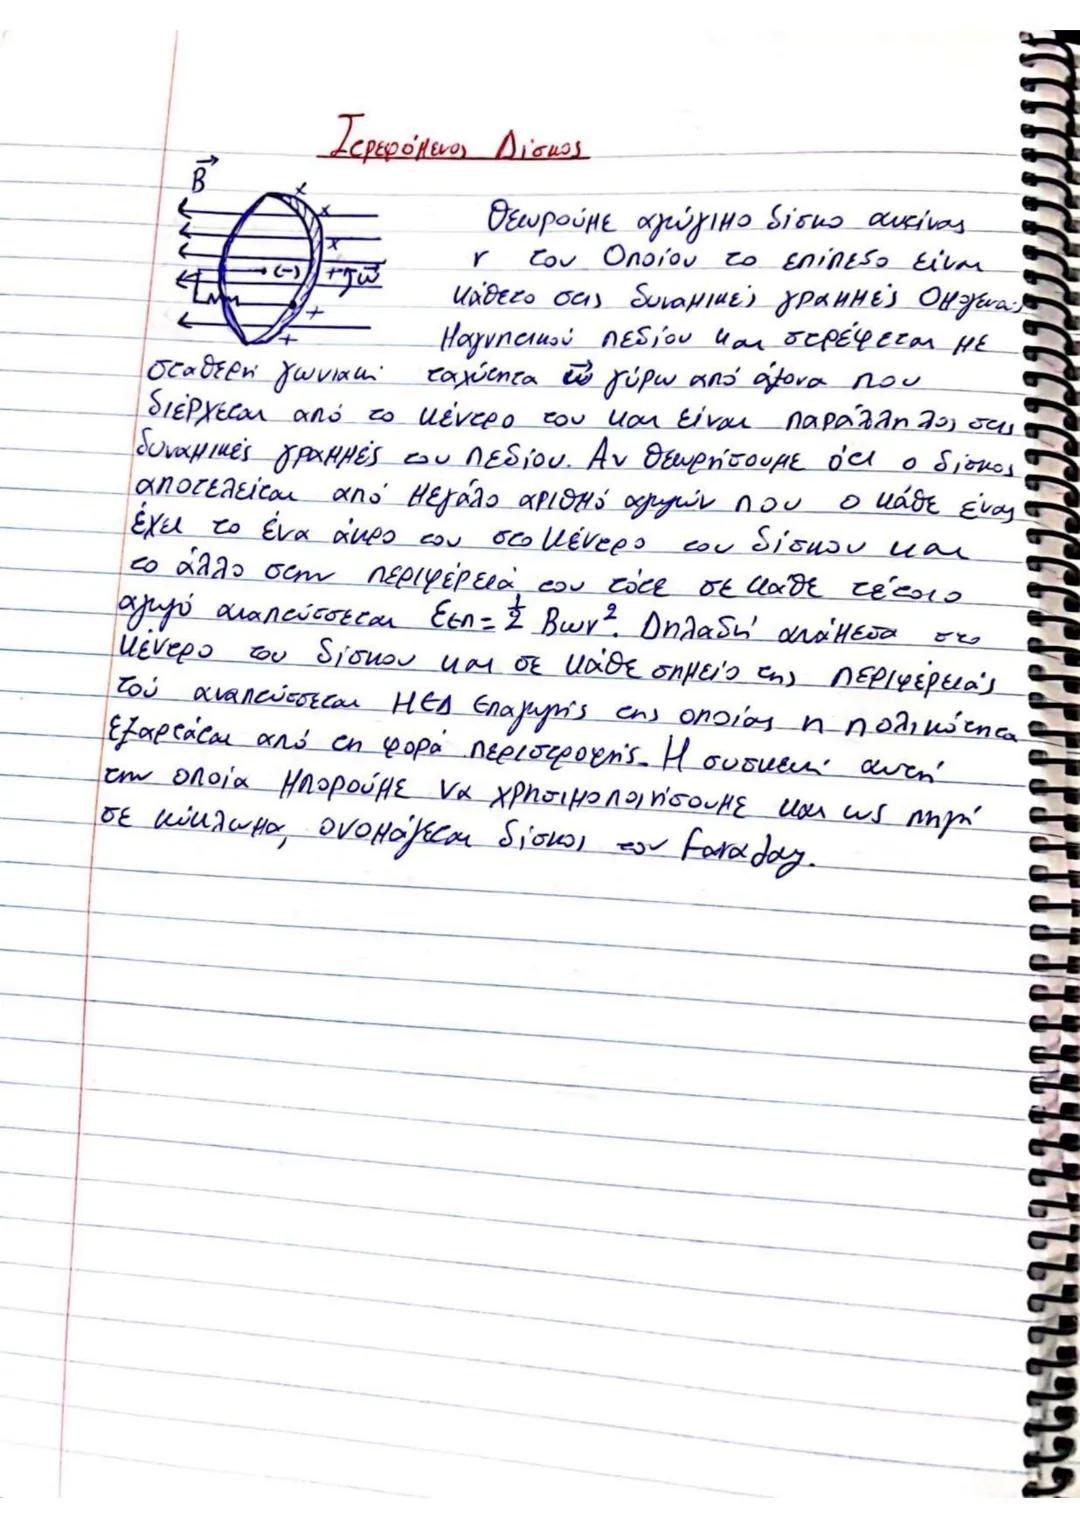 Στρεφόμενος Δίσκος
B
Θεωρούμε αγώγιμο δίσκο ακτίνας
r του οποίου το επίπεδο είναι
(-) + ω
κάθετο στις δυναμικές γραμμές ομογενούς
μαγνητικού πεδίου και στρέφεται με
σταθερή γωνιακή ταχύτητα ω γύρω από άξονα που
διέρχεται από το κέντρο του και είναι παράλληλος στις
δυναμικές γραμμές του πεδίου. Αν θεωρήσουμε ότι ο δίσκος
αποτελείται από μεγάλο αριθμό αγωγών που ο κάθε ένας
έχει το ένα άκρο του στο κέντρο του δίσκου και
το άλλο στην περιφέρειά του τότε σε κάθε τέτοιο
αγωγό αναπτύσσεται Eεπ = 1/2 Bωr². Δηλαδή ανάμεσα στο
κέντρο του δίσκου και σε κάθε σημείο της περιφέρειάς
του αναπτύσσεται ΗΕΔ επαγωγής της οποίας η πολικότητα
εξαρτάται από τη φορά περιστροφής. Η συσκευή αυτή
την οποία μπορούμε να χρησιμοποιήσουμε και ως πηγή
σε κύκλωμα, ονομάζεται δίσκος του Faraday.